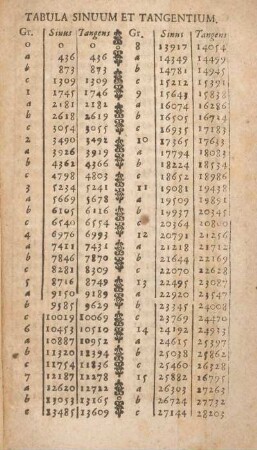 TABULA SINUUM ET TANGENTIUM.
Gr. Sinus Tangens Gr. Sinus Tangens
0 0 0 8 13917 14054
a 436 436 a 14349 14499
b 873 873 b 14781 14945
c 1309 1309 c 15212 15391
1 1745 1746 9 15643 15838
a 2181 2182 a 16074 16286
b 2618 2619 b 16505 16734
c 3054 3055 c 16935 17183
2 3490 3492 10 17365 17633
a 3926 3929 a 17794 18083
b 4362 4366 b 18224 18534
c 4798 4803 c 18652 18986
3 5234 5241 11 19081 19438
a 5669 5678 a 19509 19891
b 6105 6116 b 19937 20345
c 6540 6554 c 20364 20800
4 6976 6993 12 20791 21256
a 7411 7431 a 21218 21712
b 7846 7870 b 21644 22169
c 8281 8309 c 22070 22628
5 8716 8749 13 22495 23087
a 9150 9189 a 22920 23547
b 9585 9629 b 23345 24008
c 10019 10069 c 23769 24470
6 10453 10510 14 24192 24933
a 10887 10952 a 24615 25397
b 11320 11394 b 25038 25862
c 11754 11836 c 25460 26328
7 12187 12278 15 25882 16795
a 12620 12722 a 26303 27263
b 13053 13165 b 26724 27732
c 13485 13609 c 27144 28203